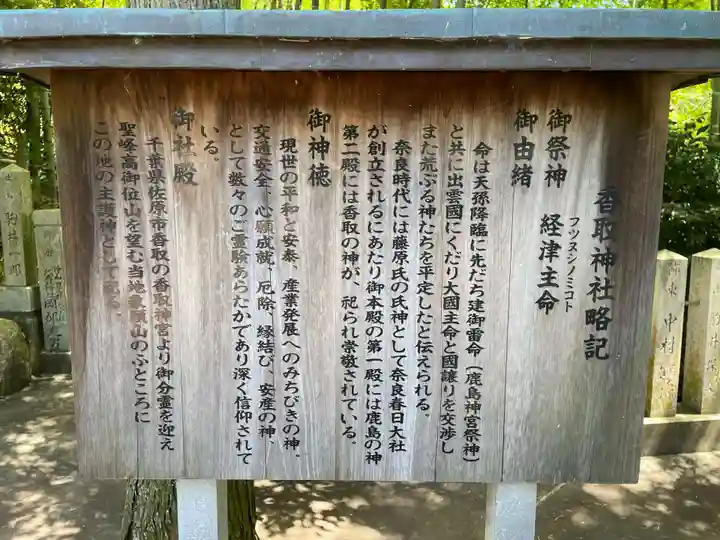 香取神社略記
御祭神 経津主命
フツヌシノミコト
御由緒
命は天孫降臨に先だち建御雷命（鹿島神宮祭神）
と共に出雲國にくだり大國主命と國譲りを交渉し
また荒ぶる神たちを平定したと伝えられる。
奈良時代には藤原氏の氏神として奈良春日大社
が創立されるにあたり御本殿の第一殿には鹿島の神
第二殿には香取の神が、祀られ崇敬されている。
御神徳
現世の平和と安泰、産業発展へのみちびきの神。
交通安全、心願成就、厄除、縁結び、安産の神、
として数々のご霊験あらたかであり深く信仰されて
いる。
御社殿
千葉県佐原市香取の香取神宮より御分霊を迎え
聖峰高御位山を望む当地山のふところに
この地の主護神として祀る。
中村